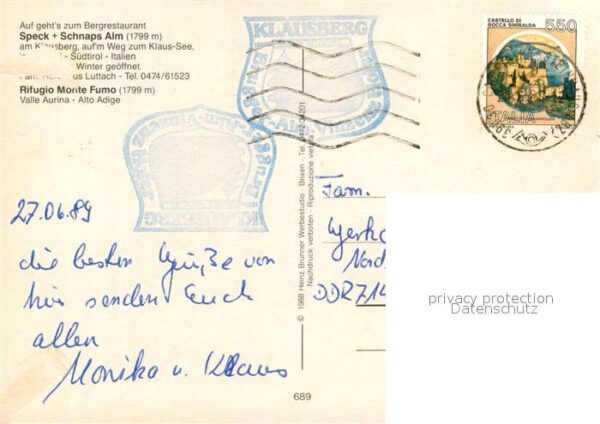 Auf geht's zum Bergrestaurant
Speck + Schnaps Alm (1799 m)
am Klausberg, auf'm Weg zum Klaus-See,
- Südtirol - Italien
Winter geöffnet.
Luttach - Tel. 0474/61523
Rifugio Monte Fumo (1799 m)
Valle Aurina - Alto Adige
KLAUSBERG
KLAUSBERG
CASTELLO DI
ROCCA SINIBALDA
550
ITALIA
27.06.89
die besten Grüße von
hir senden Euch
allen
Monika u. Klaus
© 1988 Heinz Brunner Werbestudio - Brixen - Tel. 0472-34201
Nachdruck verboten - Riproduzione vietata
Fam.
Nord
DDR 714
689
privacy protection
Datenschutz